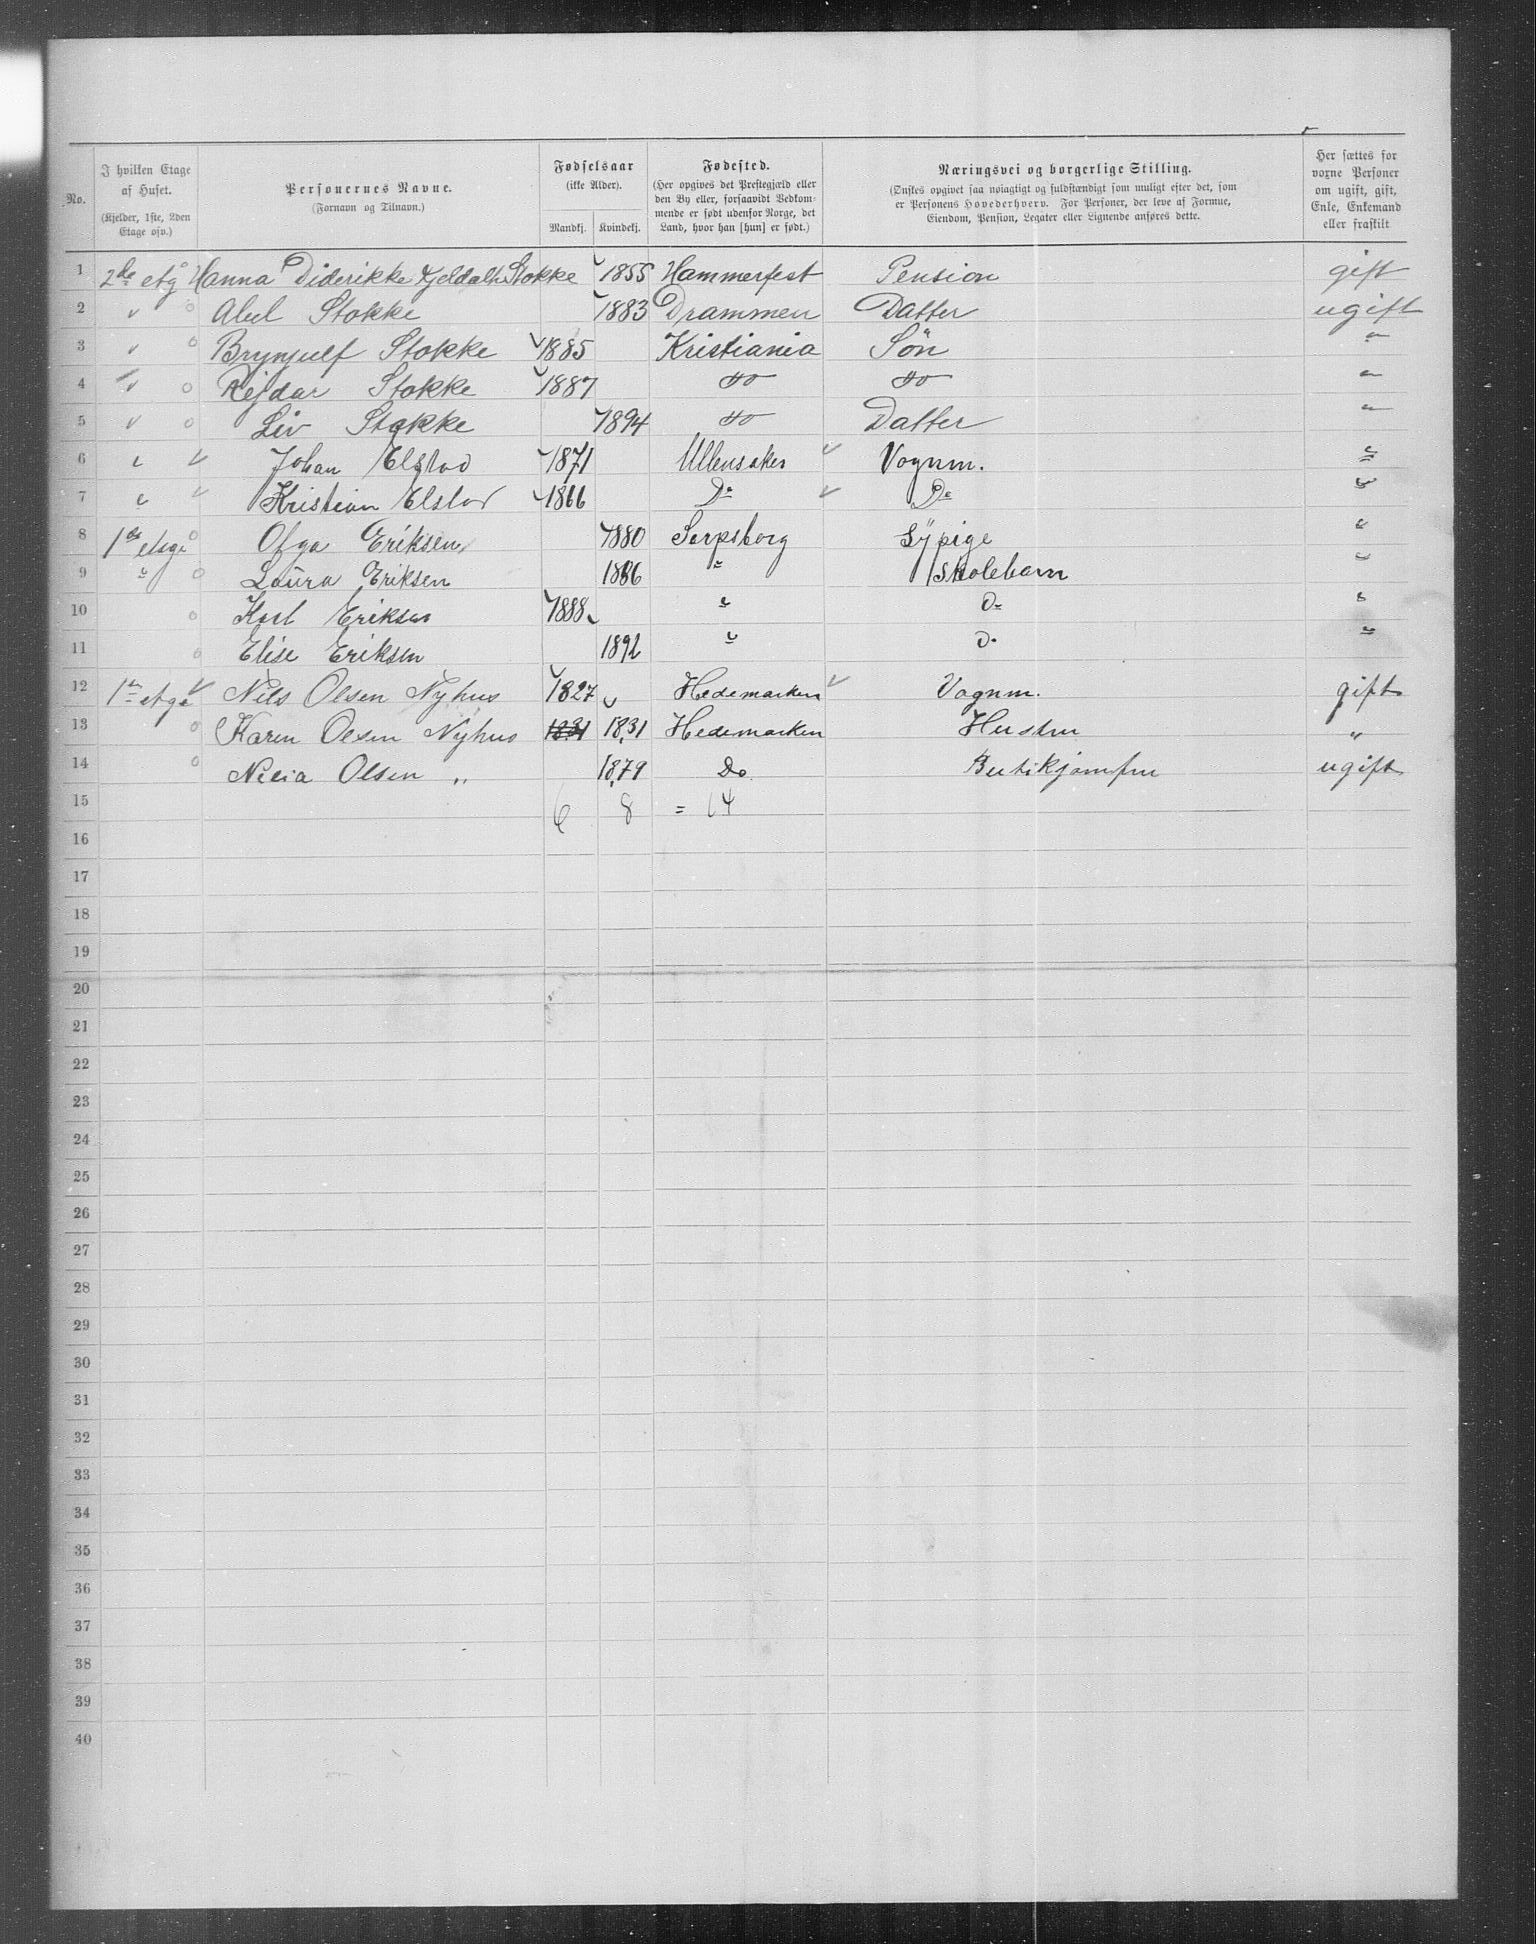 No.
I hvilken Etage af Huset.
(Kjelder, 1ste, 2den Etage osv.)
Personernes Navne.
(Fornavn og Tilnavn.)
Fødselsaar
(ikke Alder).
Mandkj. Kvindekj.
Fødested.
(Her opgives det Prestegjæld eller den By eller, forsaavidt Vedkommende er født udenfor Norge, det Land, hvor han [hun] er født.)
Næringsvei og borgerlige Stilling.
(Ønskes opgivet saa nøiagtigt og fuldstændigt som muligt efter det, som er Personens Hovederhverv. For Personer, der leve af Formue, Eiendom, Pension, Legater eller Lignende anføres dette.
Her sættes for voxne Personer om ugift, gift, Enke, Enkemand eller fraskilt
1 2de etg Hanna Diderikke Kjeldalh Stokke 1855 Hammerfest Pension gift
2 " Abel Stokke 1883 Drammen Datter ugift
3 " Brynjulf Stokke 1885 Kristiania Sön "
4 " Rejdar Stokke 1887 do do "
5 " Liv Stokke 1894 do Datter "
6 " Johan Elstad 1871 Ullensaker Vognm. "
7 " Kristian Elstad 1866 Do Do "
8 1ste etage Olga Eriksen 1880 Sarpsborg Sÿpige "
9 " Laura Eriksen 1886 " Skolebarn "
10 Karl Eriksen 1888 " Do "
11 Elise Eriksen 1892 " Do "
12 1ste etage Nils Olsen Nyhus 1827 Hedemarken Vognm. gift
13 Karen Olsen Nyhus 1831 1831 Hedemarken Hustru "
14 Olsen " 1879 Do Butikjomfru ugift
15 6 8 = 14
16
17
18
19
20
21
22
23
24
25
26
27
28
29
30
31
32
33
34
35
36
37
38
39
40